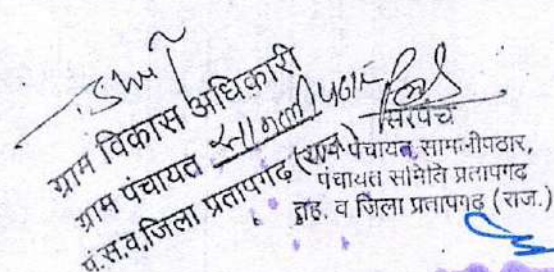 ग्राम विकास अधिकारी
ग्राम पंचायत सामली पठार
पं.स.व.जिला प्रतापगढ़ (राज.)
सरपंच
ग्राम पंचायत सामलीपठार,
पंचायत समिति प्रतापगढ
व जिला प्रतापगढ़ (राज.)